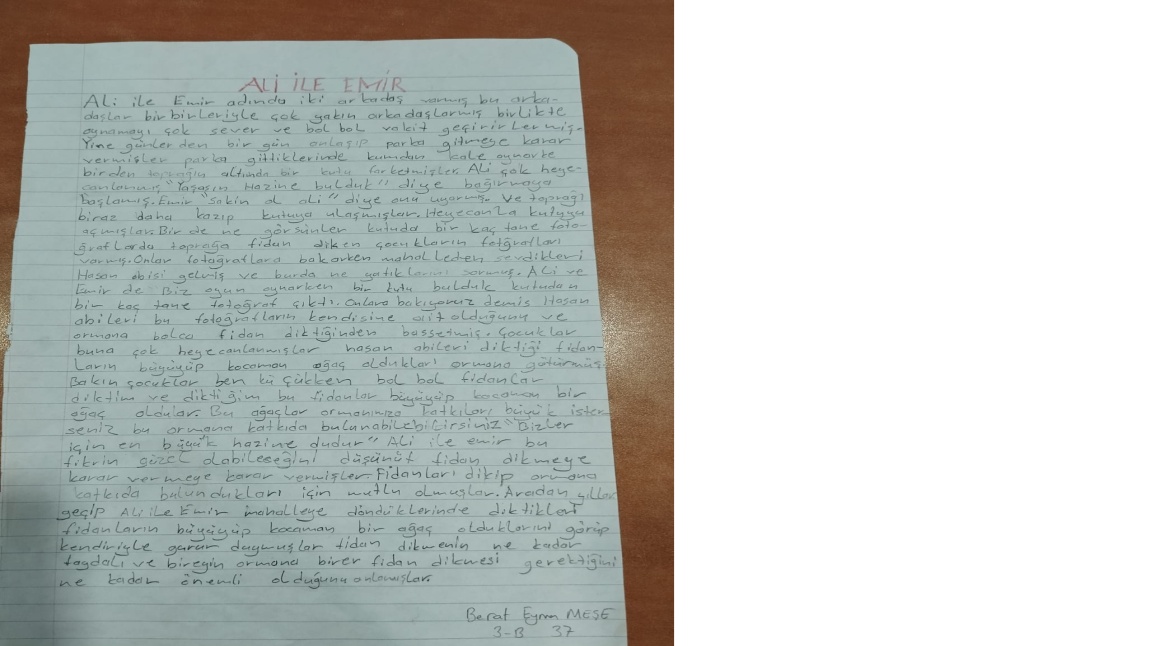 ALİ İLE EMİR
Ali ile Emir adında iki arkadaş varmış bu arka-
daşlar birbirleriyle çok yakın arkadaşlarmış birlikte
oynamayı çok sever ve bol bol vakit geçirirlermiş.
Yine günlerden bir gün anlaşıp parka gitmeye karar
vermişler parka gittiklerinde kumdan kale oynarke
birden toprağın altında bir kutu farketmişler. Ali çok heye-
canlanmış "Yaşasın Hazine bulduk" diye bağırmaya
başlamış. Emir "sakin ol ali" diye onu uyarmış. Ve toprağı
biraz daha kazıp kutuya ulaşmışlar. Heyecanla kutuyu
açmışlar. Bir de ne görsünler kutuda bir kaç tane foto-
ğraflarda toprağa fidan diken çocukların fotğrafları
varmış. Onlar fotoğraflara bakarken mahalleden sevdikleri
Hasan abisi gelmiş ve burda ne yatıklarını sormuş. Ali ve
Emir de "Biz oyun oynarken bir kutu bulduk kutudan
bir kaç tane fotoğraf çıktı. Onlara bakıyoruz demiş Hasan
abileri bu fotoğrafların kendisine ait olduğunu ve
ormana bolca fidan diktiğinden bassetmiş. Çocuklar
buna çok heyecanlanmışlar hasan abileri diktiği fidan-
ların büyüyüp kocaman ağaç oldukları ormana götürmüş.
Bakın çocuklar ben küçükken bol bol fidanlar
diktim ve diktiğim bu fidanlar büyüyüp kocaman bir
ağaç oldular. Bu ağaçlar ormanımıza katkıları büyük ister-
seniz bu ormana katkıda bulunabilebilirsiniz "Bizler
için en büyük hazine dudur" Ali ile emir bu
fikrin güzel olabileceğini düşünüt fidan dikmeye
karar vermeye karar vermişler. Fidanları dikip ormana
katkıda bulundukları için mutlu olmuşlar. Aradan yıllar
geçip Ali ile Emir mahalleye döndüklerinde diktikleri
fidanların büyüyüp kocaman bir ağaç olduklarını görüp
kendiriyle gurur duymuşlar fidan dikmenin ne kadar
faydalı ve bireyin ormana birer fidan dikmesi gerektiğini
ne kadar önemli olduğunu anlamışlar.
Berat Eymen MEŞE
3-B 37